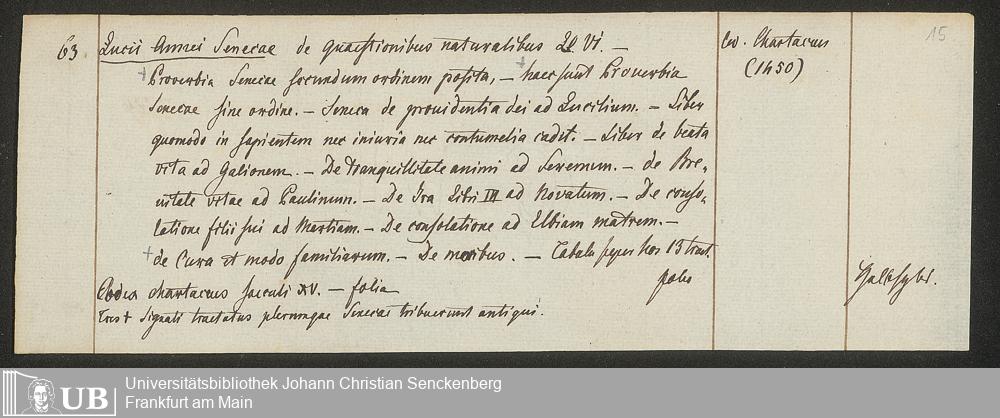 63 Lucii Annei Senecae de quaestionibus naturalibus LL VI. — Co. Chartaceus 15
+ Proverbia Senecae secundum ordinem posita, — + haec sunt Proverbia (1450)
Senecae sine ordine. — Seneca de prouidentia dei ad Lucilium. — Liber
quomodo in sapientem nec iniuria nec contumelia cadit. — Liber de beata
vita ad Galionem. — De tranquillitate animi ad Serenum. — de Bre-
uitate vitae ad Paulinum. — De Ira Libri III ad Novatum. — De conso-
latione filii sui ad Martiam. — De consolatione ad Elbiam matrem. —
+ de Cura et modo familiarum. — De moribus. — Tabula super hos 13 tract.
Codex chartaceus saeculi XV. — folia
Tres + signati tractatus plerumque Senecae tribuerunt antiqui.
UB Universitätsbibliothek Johann Christian Senckenberg
Frankfurt am Main